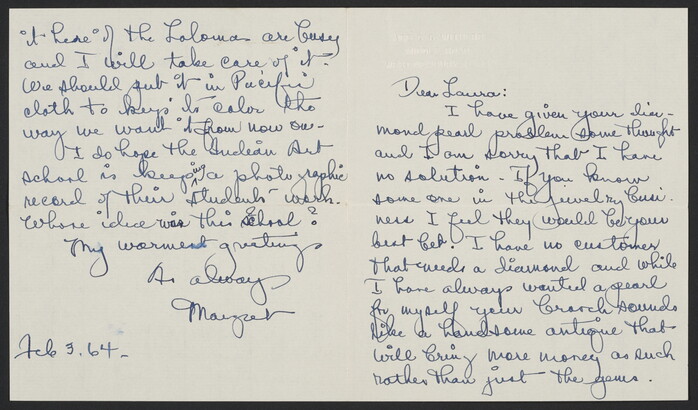 Dear Laura:
I have given your dia-
mond pearl problem some thought
and I am sorry that I have
no solution. If you know
some one in the jewelry busi-
ness I feel they would be your
best bet. I have no customer
that needs a diamond and while
I have always wanted a pearl
for myself your broach sounds
like a handsome antique that
will bring more money as such
rather than just the gems.
it here if the Lolomas are busy
and I will take care of it.
We should put it in Pacific
cloth to keep its color the
way we want it from now on.
I do hope the Indian Art
school is keeping a photographic
record of their students' work.
Whose idea was this school?
My warmest greetings
As always
Margret
Feb 3. 64-